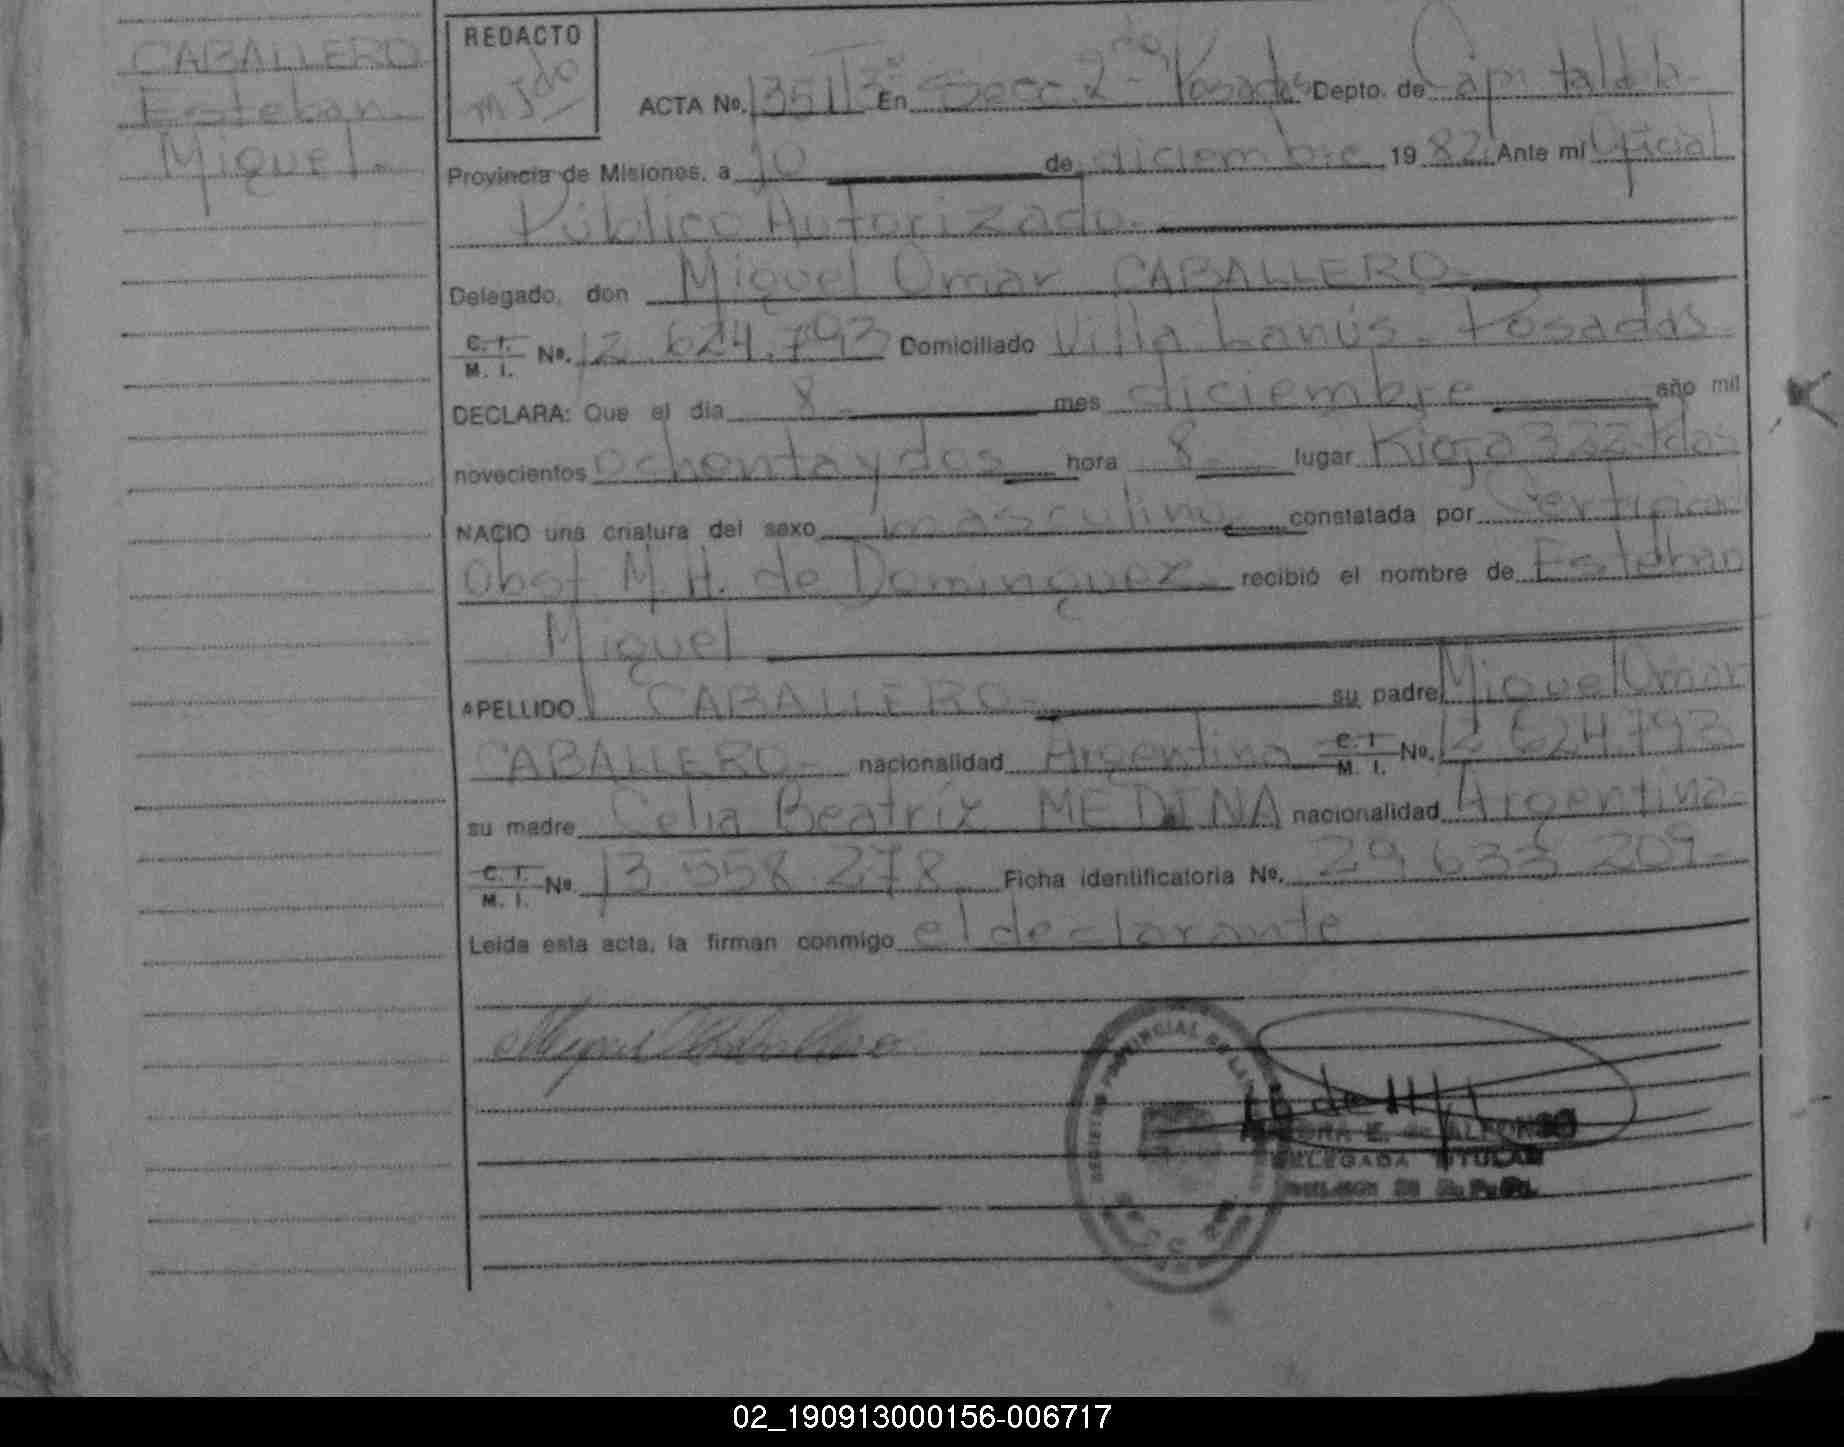 CABALLERO
Esteban
Miguel.
REDACTO
ACTA No. 1351 T3º En Secc. 2da Posadas Depto. de Capital de la
Provincia de Misiones, a 10 de diciembre 1982. Ante mi Oficial
Público Autorizado.
Delegado, don Miguel Omar CABALLERO
C. I. M. I. Nº. 12.624.793 Domiciliado Villa Lanús. Posadas
DECLARA: Que el dia 8 mes diciembre año mil
novecientos ochenta y dos hora 8 lugar Rioja 332 Pdas
NACIO una criatura del sexo masculino constatada por Certificado
Obst M. H. de Dominguez. recibió el nombre de Esteban
Miguel
APELLIDO CABALLERO su padre Miguel Omar
CABALLERO nacionalidad Argentina C. I. M. I. Nº. 12 624.793
su madre Celia Beatríz MEDINA nacionalidad Argentina
C. I. M. I. Nº 13 558.278 Ficha identificatoria Nº. 29.633 209-
Leida esta acta, la firman conmigo el declarante
E. de ALFONSO
DELEGADA TITULAR
02_190913000156-006717